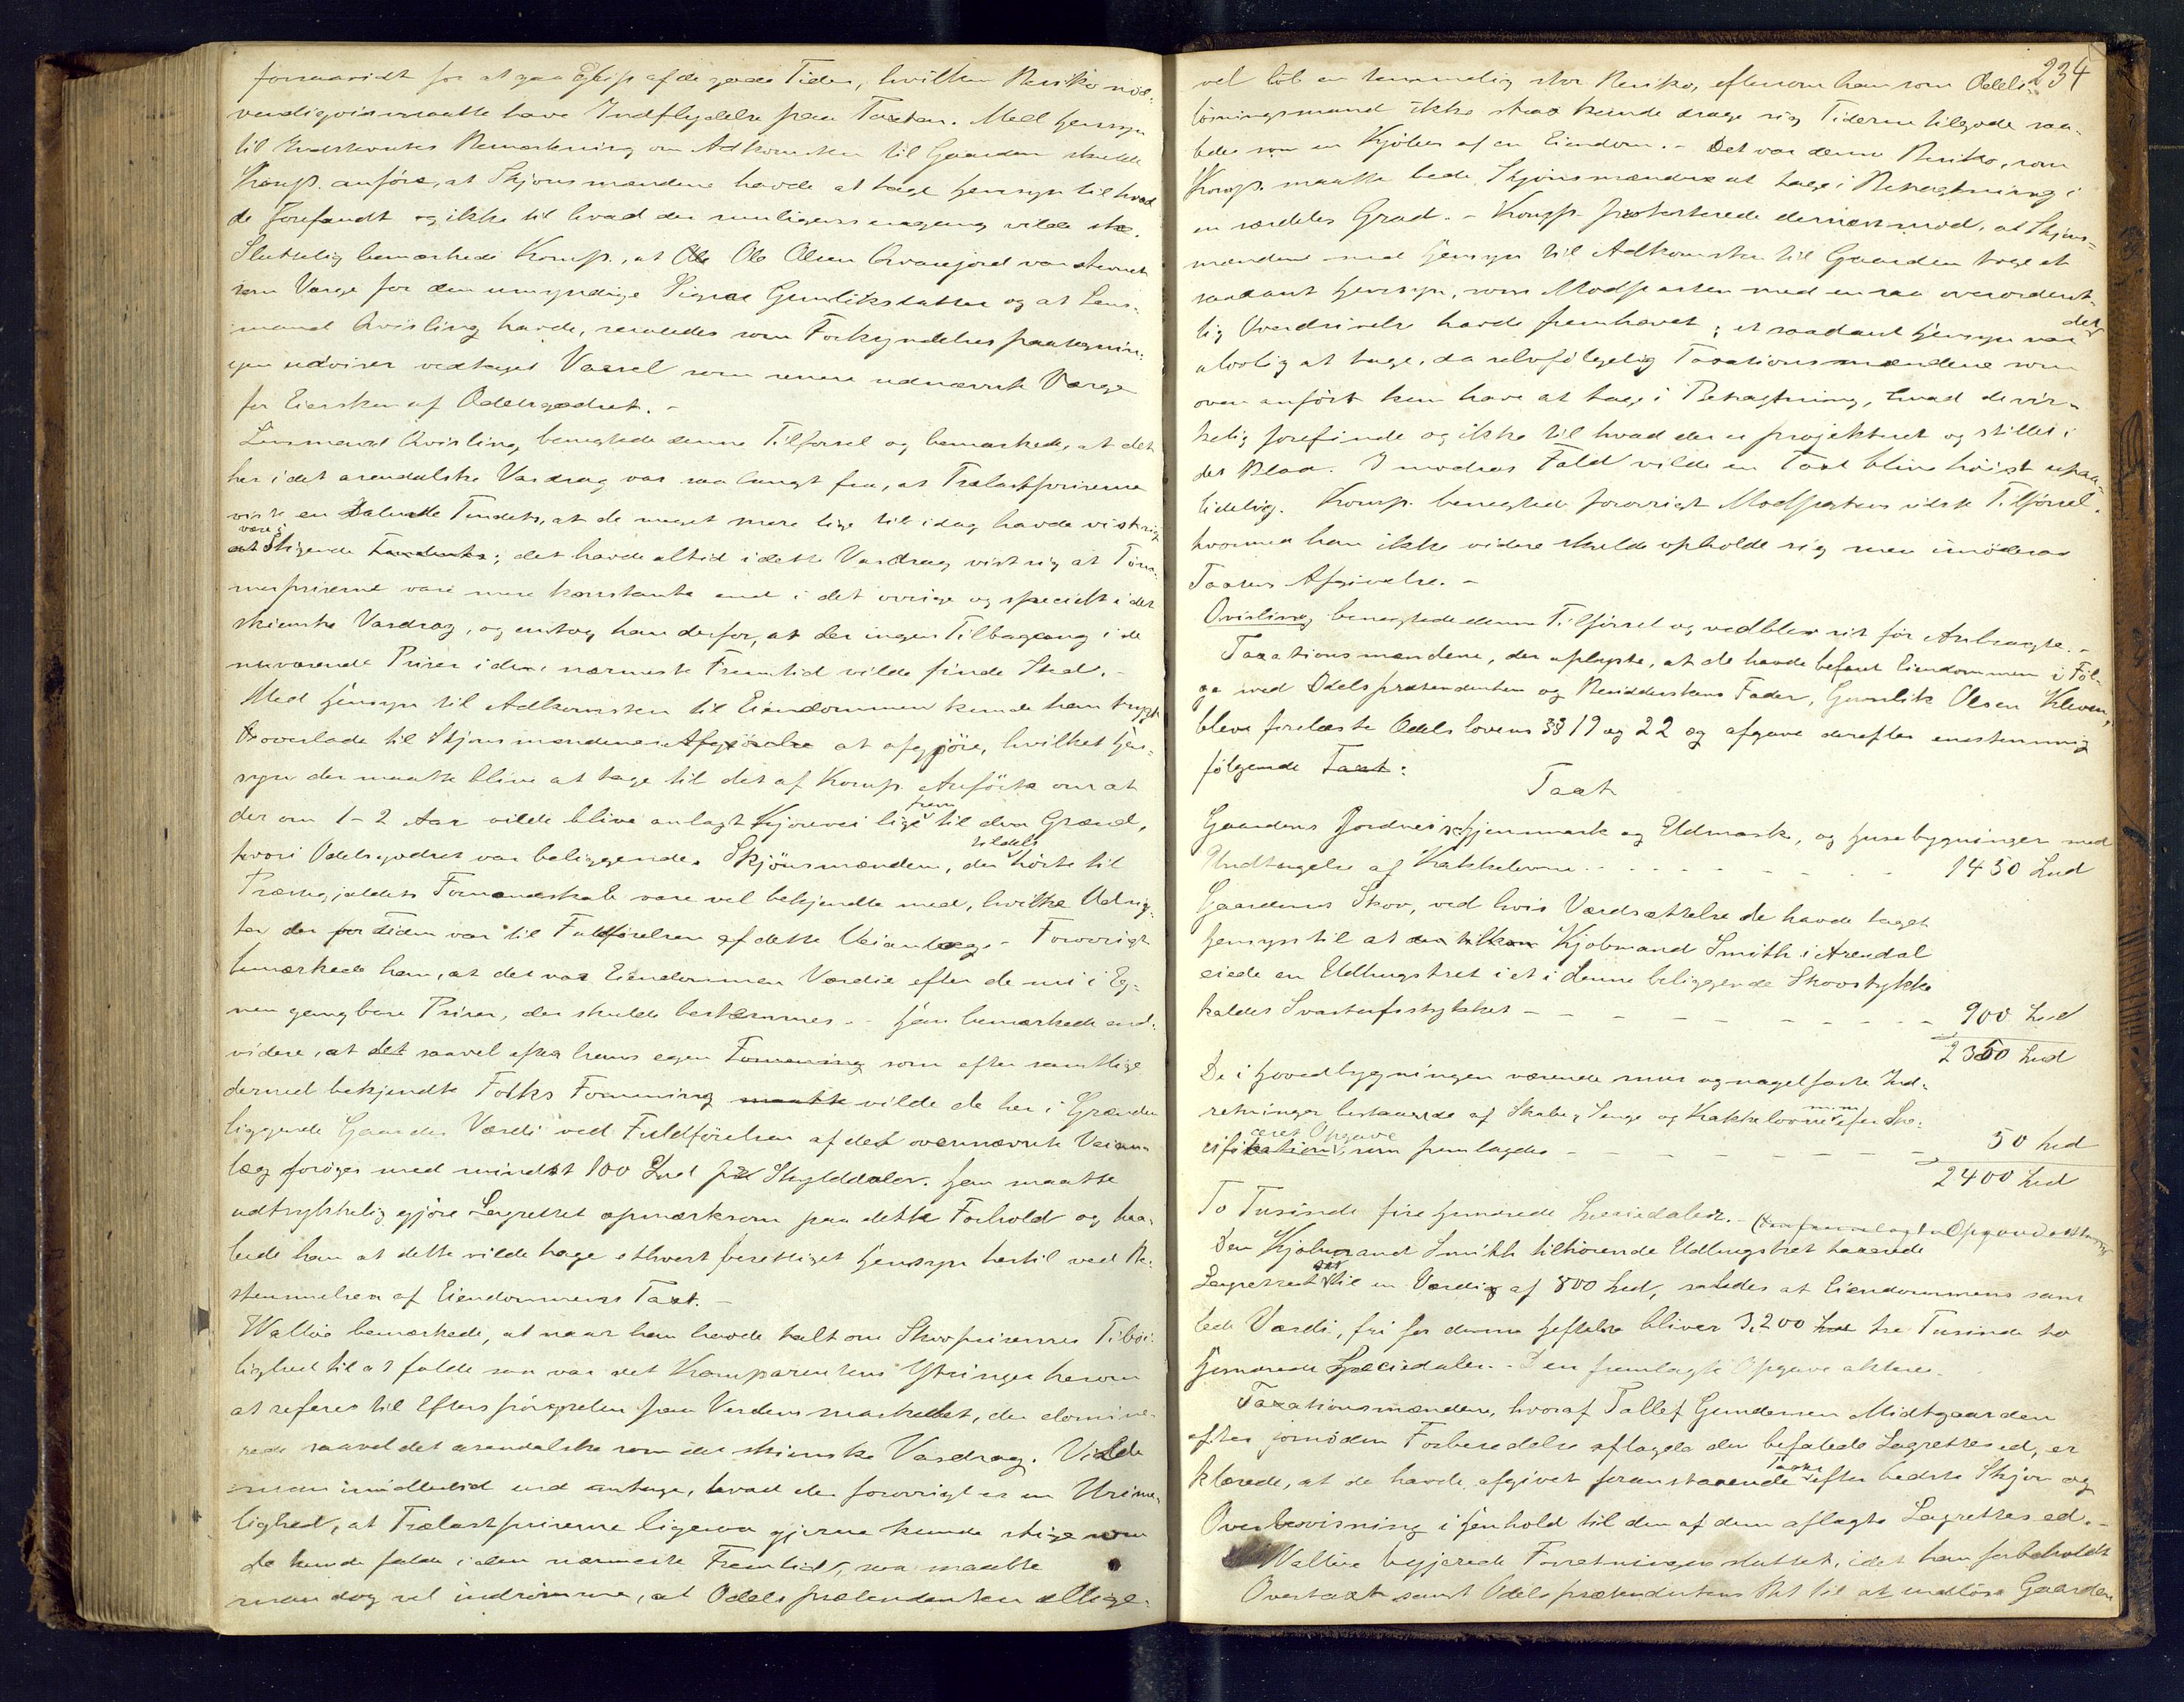 forsaavidt for at gaa Glip af de gode Tider, hvilken Risiko nød-
vendigvis maatte have Indflydelse paa Taxten. Med Hensyn
til Indstevntes Bemærkning om Adkomsten til Gaarden skulde
Komp. anføre, at Skjønsmændene havde at tage Hensyn til hvad
de forefandt og ikke til hvad der muligens engang vilde ske.
Sluttelig bemærkede Komp., at Ole Olsen var stevnet
som Værge for den umyndige Signe Gunliksdatter og at Lens-
mand Qvisling havde, saaledes som Forkyndelsespaategnin-
gen udviser vedtaget Varsel som senere udnævnt Værge
for Eiersken af Odelsgodset. -
Lensmand Qvisling benegtede denne Tilførsel og bemærkede, at det
her i det arendalske Vasdrag var saa langt fra, at Trælastpriserne
viste en dalende Tendets, at de meget mere lige til idag havde vist sig
at være i Stigende; det havde altid i dette Vasdrag vist sig at Tøm-
merpriserne vare mere konstante end i det øvrige og specielt i det
skienske Vasdrag, og antog han derfor, at der ingen Tilbagegang i de
nuværende Priser i den nærmeste Fremtid vilde finde Sted. -
Med Hensyn til Adkomsten til Eiendommen kunde han trygt
overlade til Skjønsmændene at afgjøre, hvilket Hen-
syn der maatte blive at tage til det af Komp. Anførte om at
der om 1-2 Aar vilde blive anlagt Kjørevei lige frem til den Grænd,
hvori Odelsgodset var beliggende. Skjønsmændene, der tildels hørte til
Præstegjeldets Formandskab vare vel bekjendte med, hvilke Udsig-
ter der for Tiden var til Fuldførelsen af dette Veianlæg. - Forøvrigt
bemærkede han, at det var Eiendommens Værdie efter de nu i Eg-
nen gangbare Priser, der skulde bestemmes. - Han bemærkede end-
videre, at det saavel efter hans egen Formening som efter samtlige
dermed bekjendte Folks Formening maatte vilde de her i Grænden
liggende Gaardes Værdi ved Fuldførelsen af det ovennævnte Veian-
læg forøges med mindst 100 Spd pr Skylddaler. Han maatte
udtrykkelig gjøre Lagrettet opmærksom paa dette Forhold og haa-
bede han at dette vilde tage ethvert berettiget Hensyn hertil ved Be-
stemmelsen af Eiendommens Taxt. -
Walløe bemærkede, at naar han havde talt om Skovprisernes Tilbøi-
lighed til at falde saa var det Komparentens Ytringer herom
at referes til Efterspørgselen paa Verdensmarkedet, der domine-
rede saavel det arendalske som det skienske Vasdrag. Vilde
man imidlertid end antage, hvad der forøvrigt er en Urime-
lighed, at Trælastpriserne ligesaa gjerne kunde stige som
de kunde falde i den nærmeste Fremtid, saa maatte
man dog vel indrømme, at Odelsprætendenten allige-
234
vel løb en temmelig stor Risiko, eftersom han som Odels-
løsningsmand ikke strax kunde drage sig Tiderne tilgode saa-
ledes som en Kjøber af en Eiendom. - Det var denne Risiko, som
Komp. maatte bede Skjønsmændene at tage i Betragtning i
en særdeles Grad. - Komp. protesterede dernæst mod, at Skjøns-
mændene med Hensyn til Adkomsten til Gaarden toge et
saadant Hensyn, som Modparten med en saa overordent-
lig Overdrivelse havde fremhævet; et saadant Hensyn var det
ulovlig at tage, da selvfølgelig Taxationsmændene som
oven anført kun have at tage i Betragtning, hvad de vir-
kelig forefinde og ikke til hvad der er projekteret og stillet i
det Blaa. I modsat Fald vilde en Taxt blive høist upaa-
lidelig. Komp. benegted forøvrigt Modpartens sidste Tilførsel,
hvormed han ikke videre skulde opholde sig men imødesaa
Taxtens Afgivelse. -
Qvisling benegtede denne Tilførsel og vedblev sit før Anbragte. -
Taxationsmændene, der oplyste, at de havde befaret Eiendommen i Føl-
ge med Odelsprætendenten og Besidderskens Fader, Gunlik Olsen Kleven,
bleve forelæste Odelslovens §§ 19 og 22 og afgave derefter enstemmig
følgende Taxt:
Taxt
Gaardens Jordvei, Hjemmark og Udmark, og Husebygninger med
Undtagelse af Kakkelovne . . . . . . . . 1450 Spd
Gaardens Skov, ved hvis Værdsættelse de havde taget
Hensyn til at Kjøbmand Smith i Arendal
eiede en Udhugstret i et i denne beliggende Skovstykke
kaldet - - - - - - - - - - - 900 Spd
2350 Spd
De i Hovedbygningen værende mur og nagelfaste Ind-
retninger bestaaende af Skabe, Senge og Kakkelovne m.m. efter Spe-
cificeret Opgave, som fremlagdes - - - - - - - 50 Spd
2400 Spd
To Tusinde fire Hundrede Speciedaler. -
Den Kjøbmand Smith tilhørende Udhugstret taxerede
Lagrettet til en Værdie af 800 Spd, saaledes at Eiendommens sam-
lede Værdi, fri for denne Heftelse bliver 3,200 Spd tre Tusinde to
Hundrede Speciedaler. - Den fremlagte Opgave aktes.
Taxationsmændene, hvoraf Tallef Gundersen Midtgaarden
efter fornøden Forberedelse aflagde den befalede Lagrettesed, er-
klærede, at de havde afgivet foranstaaende Taxt efter bedste Skjøn og
Overbevisning i Henhold til den af dem aflagte Lagrettesed. -
Walløe begjærede Forretningen sluttet, idet han forbeholdt
Overtaxt samt Odelsprætendentens Ret til at indløse Gaarden